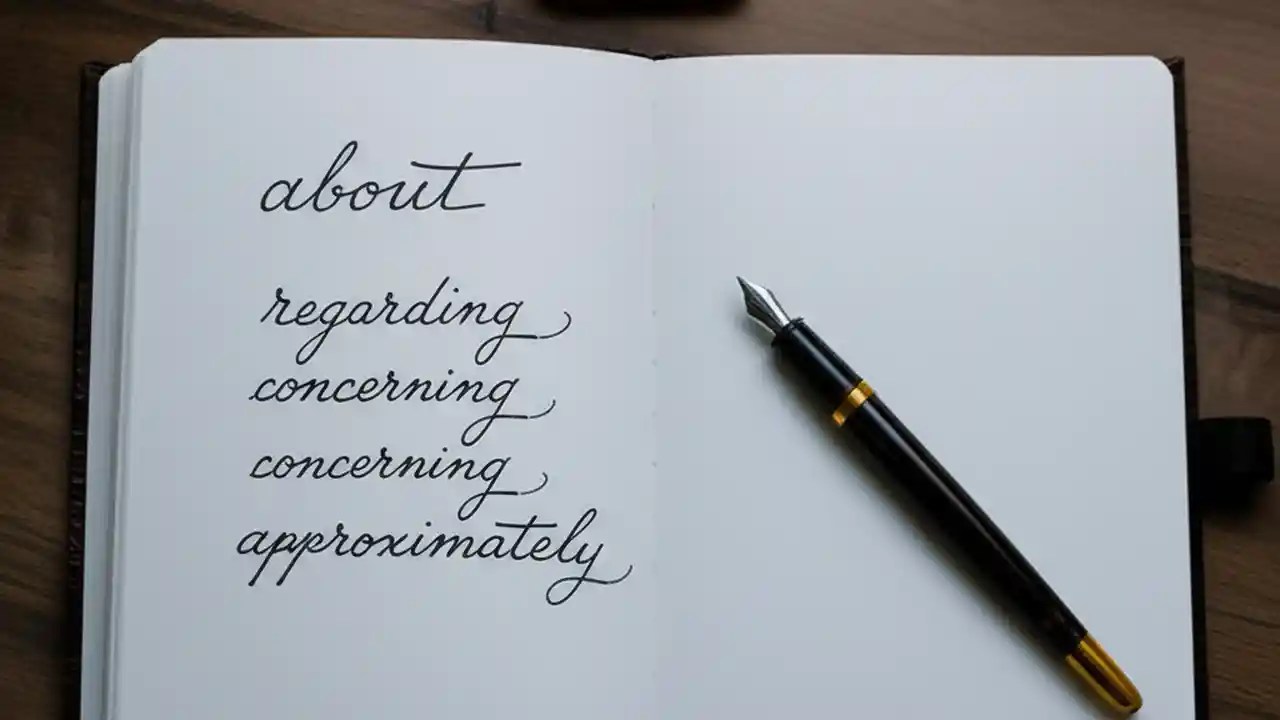 about
regarding
concerning
concerning
approximately